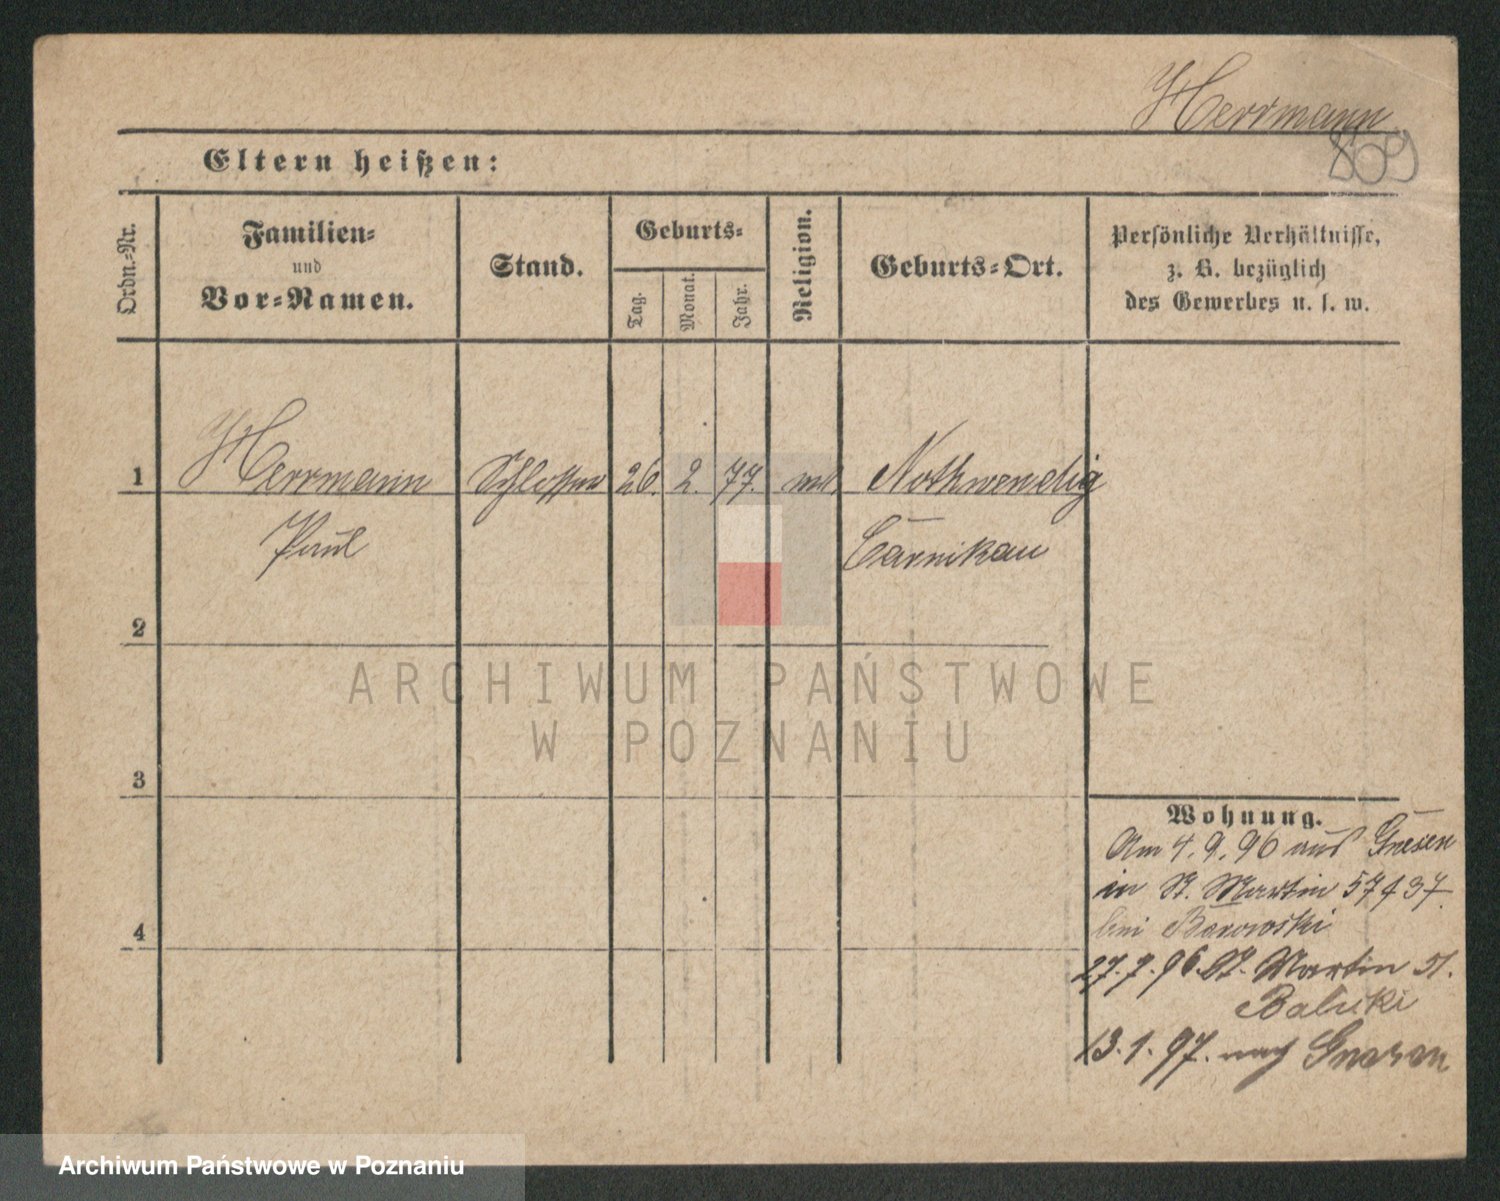 Herrmann
809
Eltern heißen:
Ordn.-Nr.
Familien-
und
Vor-Namen.
Stand.
Geburts-
Tag.
Monat.
Jahr.
Religion.
Geburts-Ort.
Persönliche Verhältnisse,
z. B. bezüglich
des Gewerbes u. s. w.
1 Herrmann Schlosser 26. 2. 77. Nothwendig
Paul Czarnikau
2
3
4
ARCHIWUM PAŃSTWOWE
W POZNANIU
Wohnung.
Am 4.9.96 aus Gnesen
in St. Martin 57
bei
27. 96. St. Martin 51.
Baluki
13.1.97. nach Gnesen
Archiwum Państwowe w Poznaniu